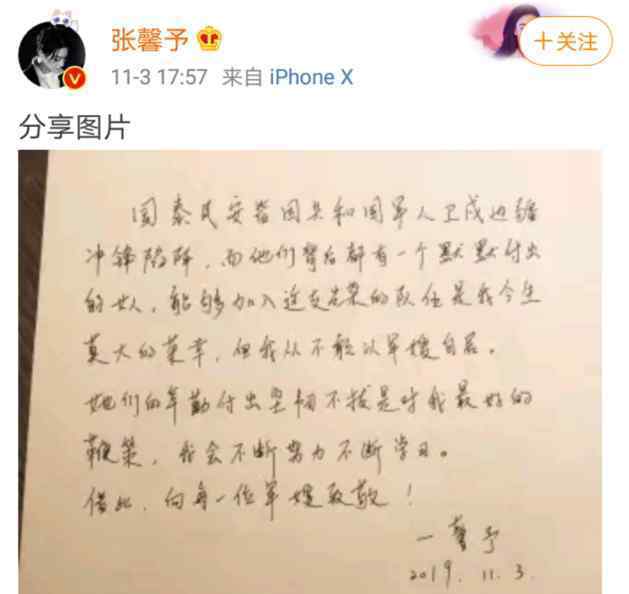 张馨予
11-3 17:57 来自 iPhone X
+关注
分享图片
国泰民安皆因共和国军人卫戍边疆
冲锋陷阵，而他们背后都有一个默默付出
的女人，能够加入这支光荣的队伍是我今生
莫大的荣幸，但我从不敢以军嫂自居。
她们的辛勤付出坚韧不拔是对我最好的
鞭策，我会不断努力不断学习。
借此，向每一位军嫂致敬！
一馨予
2019.11.3.